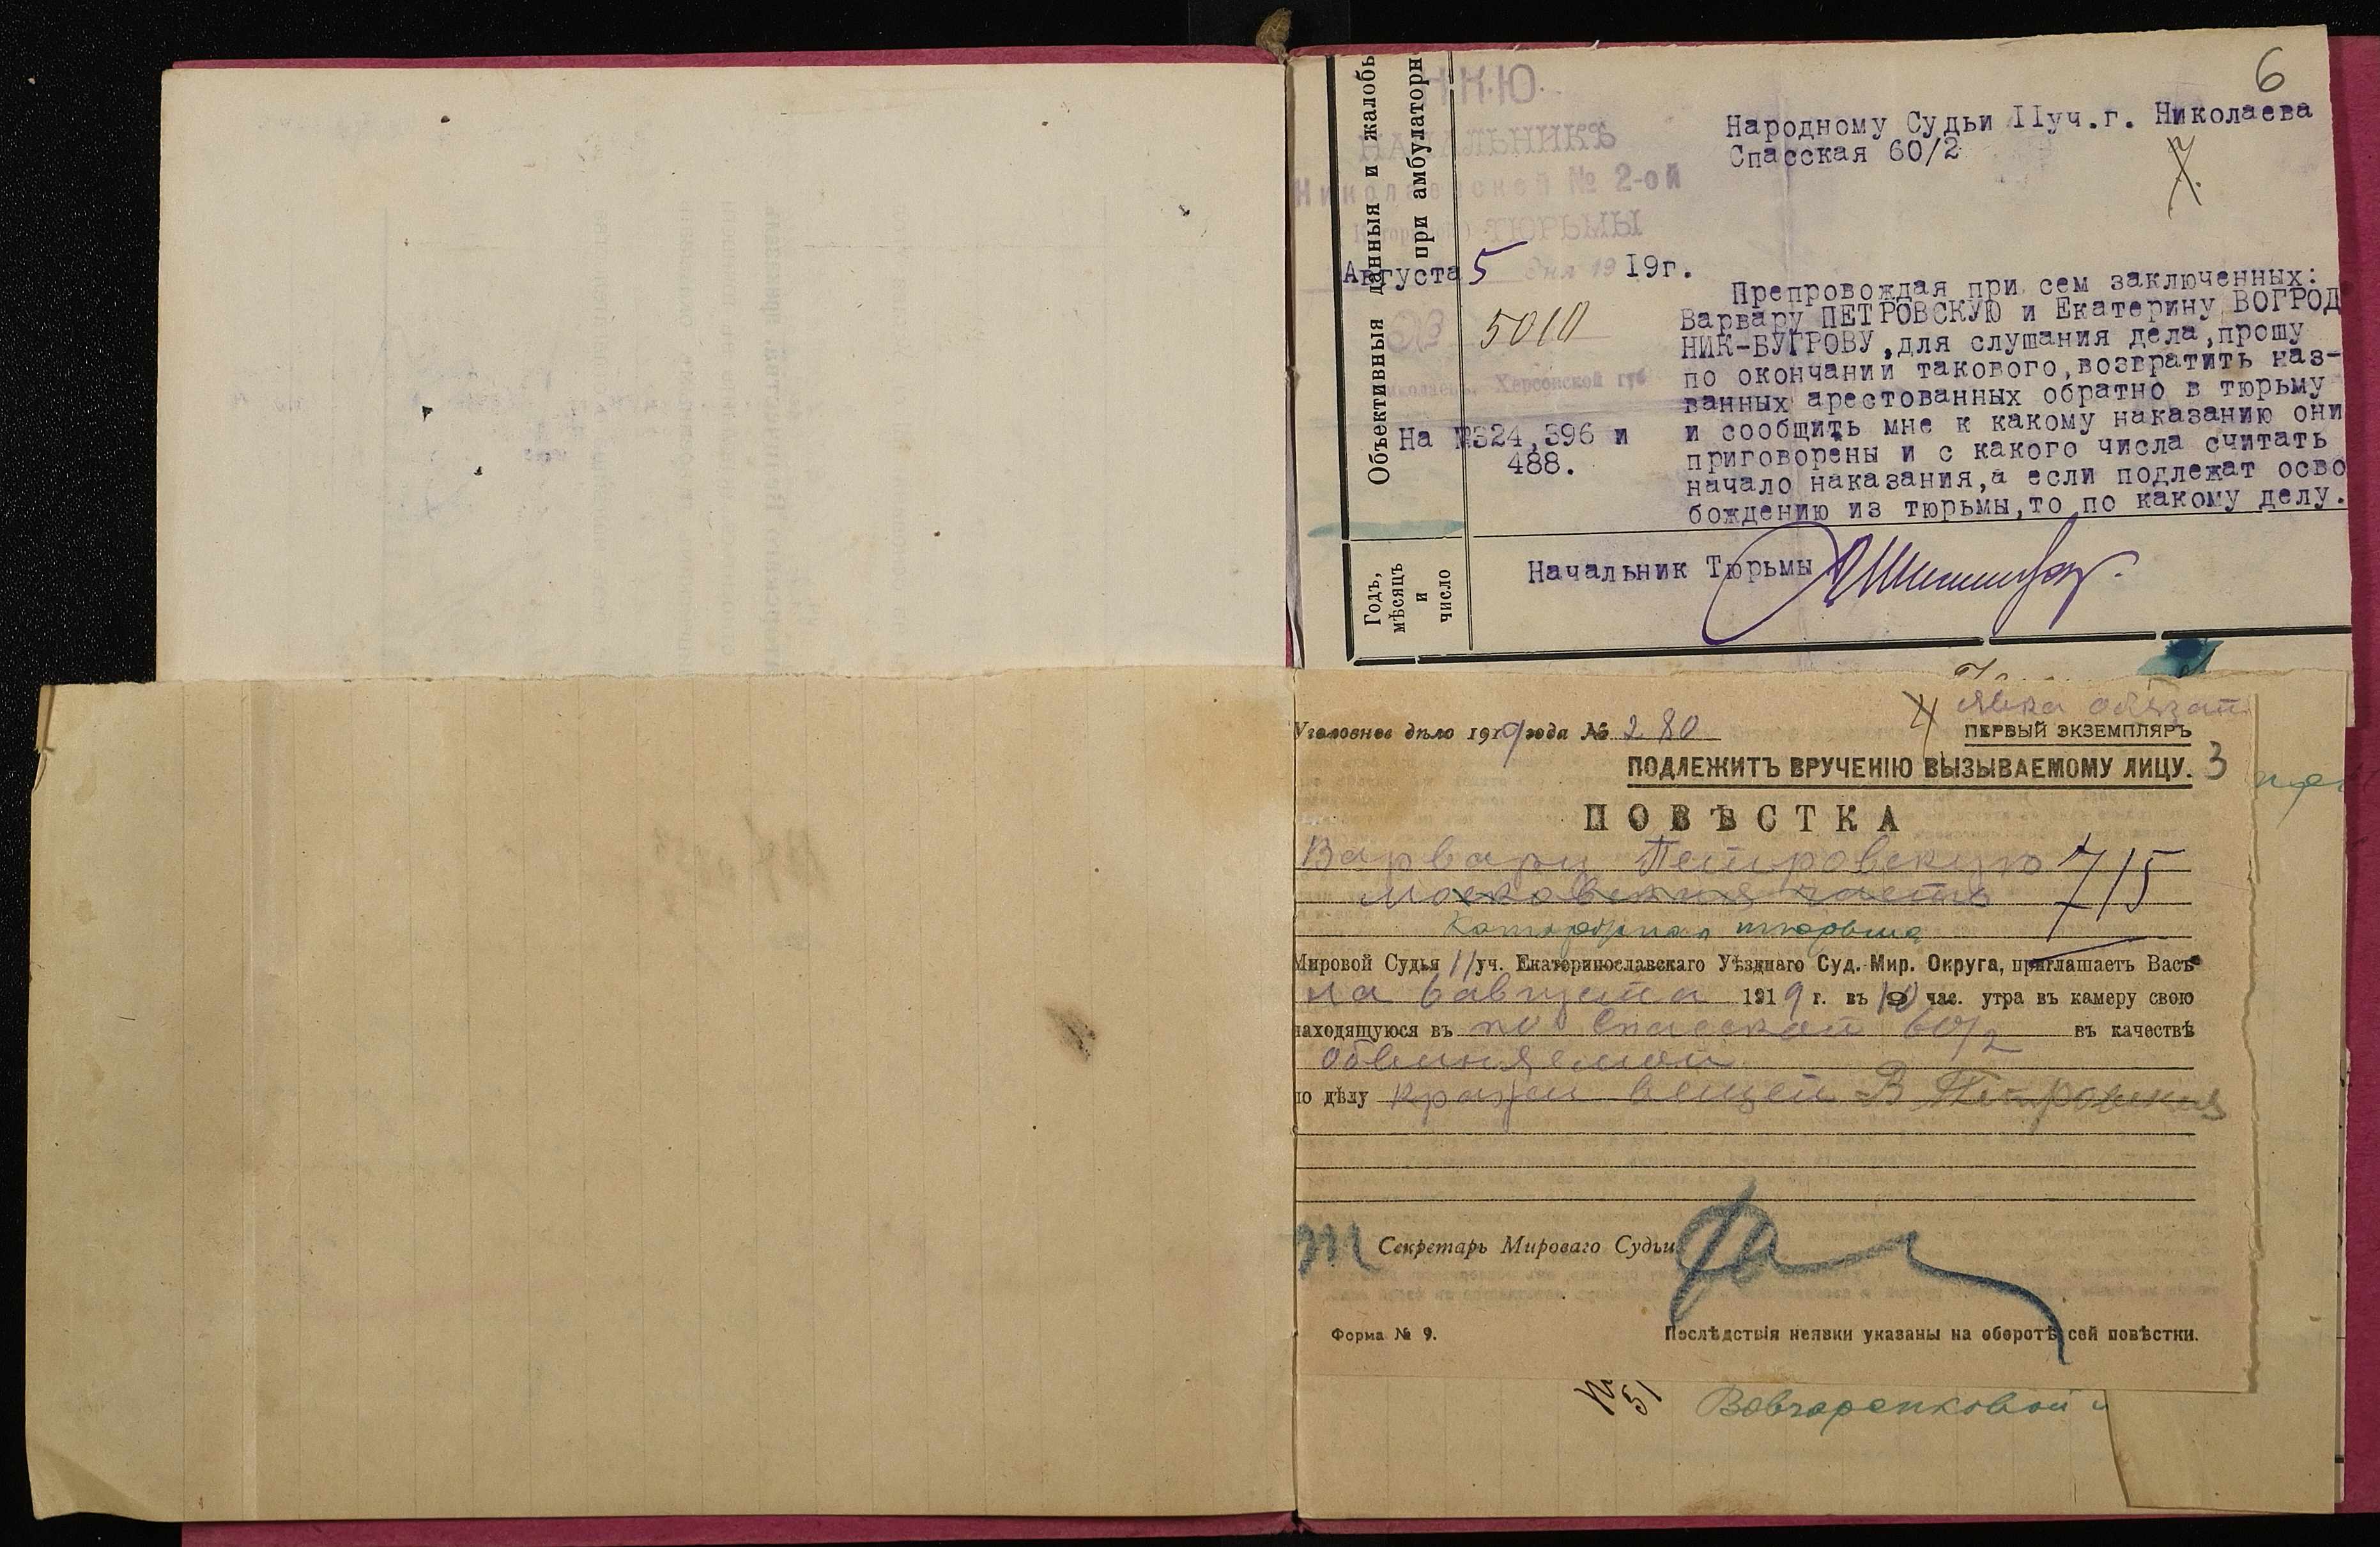 6
Н.К.Ю.
НАЧАЛЬНИКЪ
Николаевской № 2-ой
Каторжной ТЮРЬМЫ
Августа 5 дня 1919г.
№ 5010
Николаевъ, Херсонской губ
На №324,396 и
488.
Народному Судьи IIуч.г. Николаева
Спасская 60/2
Препровождая при сем заключенных:
Варвару ПЕТРОВСКУЮ и Екатерину ВОГРОД
НИК-БУГРОВУ,для слушания дела,прошу
по окончании такового,возвратить наз-
ванных арестованных обратно в тюрьму
и сообщить мне к какому наказанию они
приговорены и с какого числа считать
начало наказания,а если подлежат осво
бождению из тюрьмы,то по какому делу.
Начальник Тюрьмы
Объективныя данныя и жалобы
при амбулаторн
Годъ,
мѣсяцъ
и
число
явка обязат
Уголовное дѣло 1919 года № 280
ПЕРВЫЙ ЭКЗЕМПЛЯРЪ
ПОДЛЕЖИТЪ ВРУЧЕНІЮ ВЫЗЫВАЕМОМУ ЛИЦУ. 3
ПОВѢСТКА
Варвары Петровскую 7/5
Московская часть
Каторжная тюрьма
Мировой Судья 11 уч. Екатеринославскаго Уѣзднаго Суд. Мир. Округа, приглашаетъ Васъ
на 6 августа 1919 г. въ 10 час. утра въ камеру свою
находящуюся въ по Спасской 60/2 въ качествѣ
обвиняемой
по дѣлу кражи вещей В Петровская
Секретарь Мироваго Судьи
Форма № 9.
Послѣдствія неявки указаны на оборотѣ сей повѣстки.
Вовчаренковой и